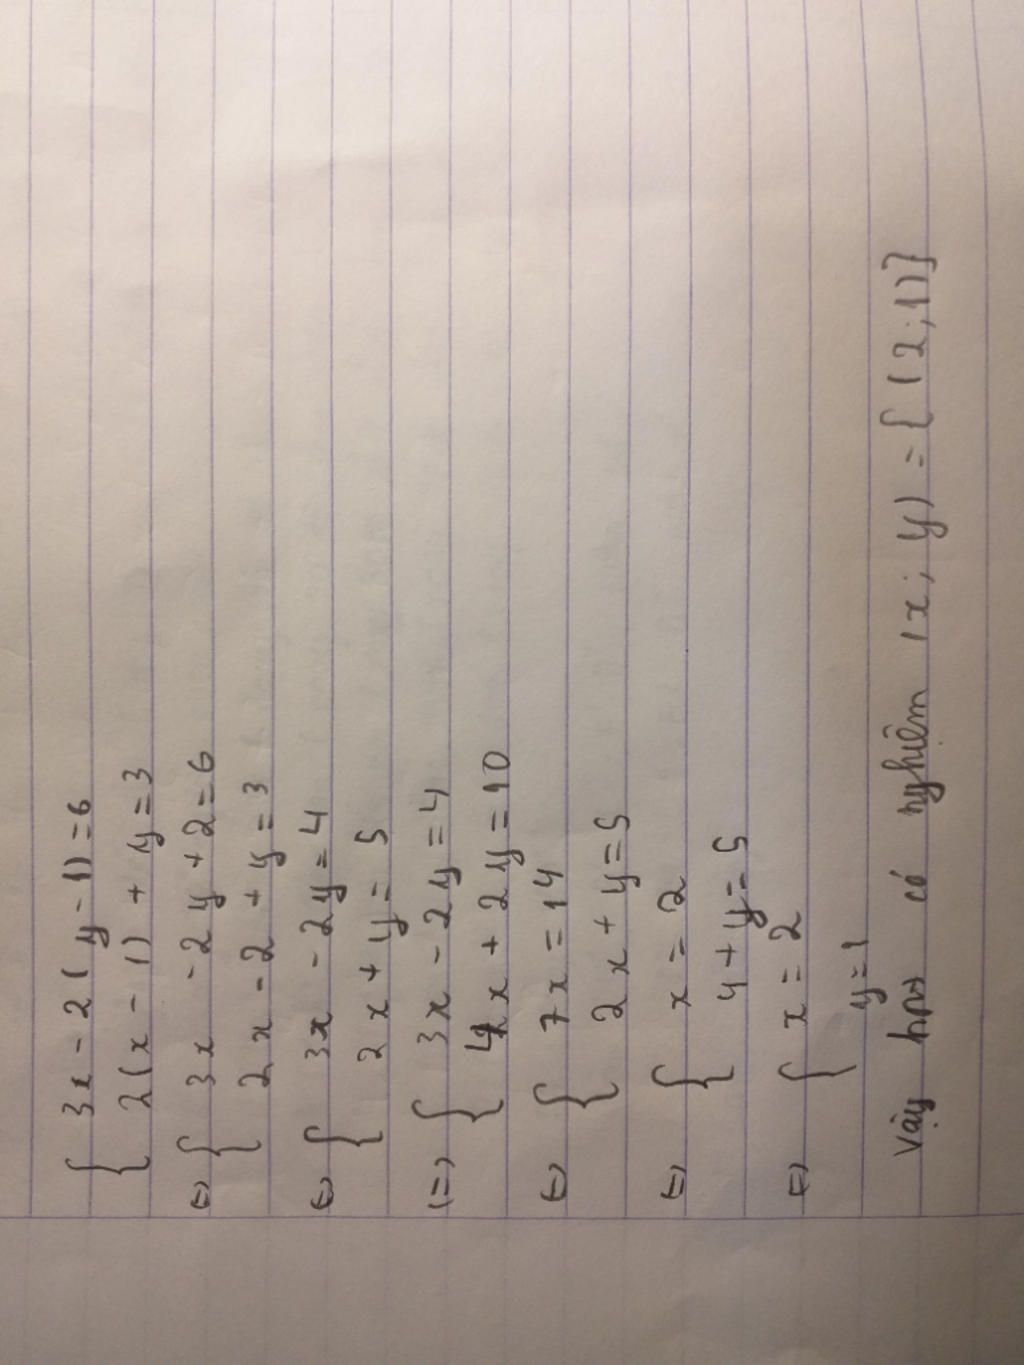 { 3x - 2(y - 1) = 6
2(x - 1) + y = 3
(=) { 3x - 2y + 2 = 6
2x - 2 + y = 3
(=) { 3x - 2y = 4
2x + y = 5
(=) { 3x - 2y = 4
4x + 2y = 10
(=) { 7x = 14
2x + y = 5
(=) { x = 2
4 + y = 5
(=) { x = 2
y = 1
Vậy hpt có nghiệm (x; y) = { (2; 1) }